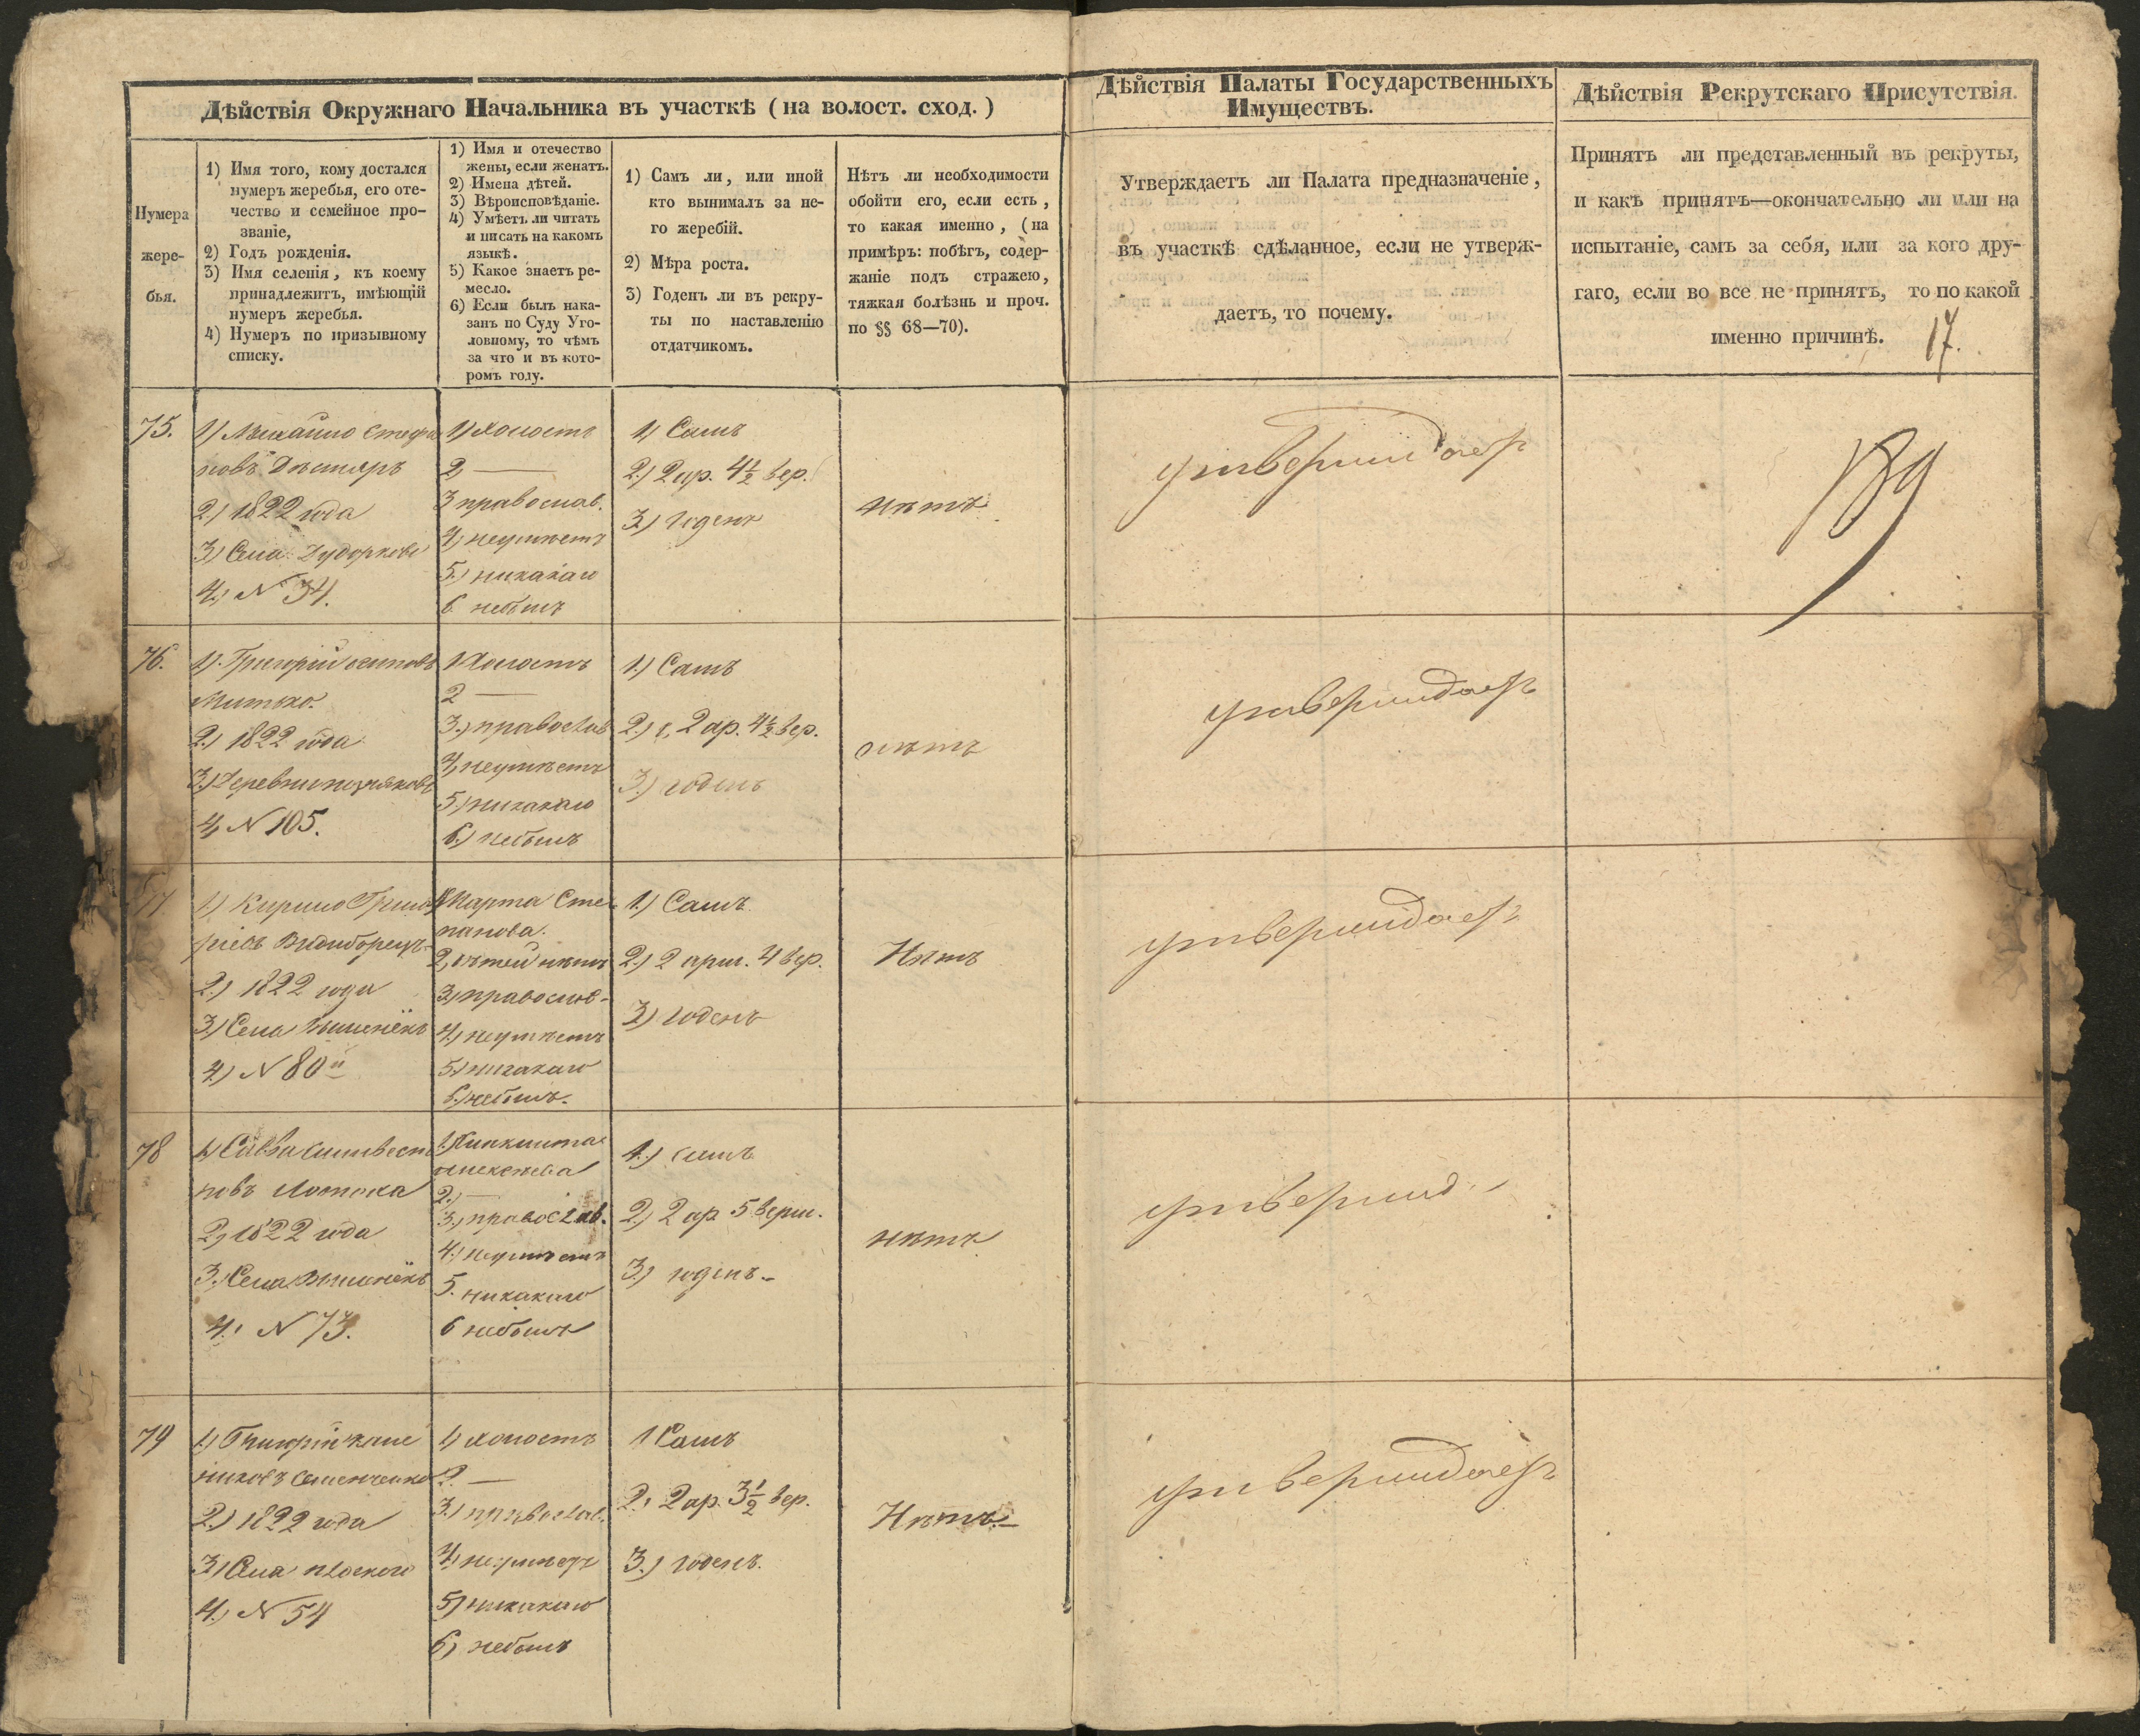 Дѣйствія Окружнаго Начальника въ участкѣ (на волост. сход.)
Дѣйствія Палаты Государственныхъ
Имуществъ.
Дѣйствія Рекрутскаго Присутствія.
Нумера
жере-
бья.
1) Имя того, кому достался
нумеръ жеребья, его оте-
чество и семейное про-
званіе,
2) Годъ рожденія.
3) Имя селенія, къ коему
принадлежитъ, имѣющій
нумеръ жеребья.
4) Нумеръ по призывному
списку.
1) Имя и отечество
жены, если женатъ.
2) Имена дѣтей.
3) Вѣроисповѣданіе.
4) Умѣетъ ли читать
и писать на какомъ
языкѣ.
5) Какое знаетъ ре-
месло.
6) Если былъ нака-
занъ по Суду Уго-
ловному, то чѣмъ
за что и въ кото-
ромъ году.
1) Самъ ли, или иной
кто вынималъ за не-
го жеребій.
2) Мѣра роста.
3) Годенъ ли въ рекру-
ты по наставленію
отдатчикомъ.
Нѣтъ ли необходимости
обойти его, если есть,
то какая именно, (на
примѣръ: побѣгъ, содер-
жаніе подъ стражею,
тяжкая болѣзнь и проч.
по §§ 68—70).
Утверждаетъ ли Палата предназначеніе,
въ участкѣ сдѣланное, если не утверж-
даетъ, то почему.
Принятъ ли представленный въ рекруты,
и какъ принятъ—окончательно ли или на
испытаніе, самъ за себя, или за кого дру-
гаго, если во все не принятъ, то по какой
именно причинѣ.
17.
75.
1) Михайло Стефа
новъ
2) 1822 года
3) Села
4) N 34.
1) Холостъ
2 —
3 православ.
4) неумѣетъ
5.) никакаго
6 небылъ
1) Самъ
2.) 2 ар. 4½ вер.
3.) Годенъ
нѣтъ
утверждаетъ
189
76.
1). Григорій осиповъ
Митько.
2.) 1822 года
3.) Деревни
4) N 105.
1 Холостъ
2 —
3.) православ
4) неумѣетъ
5.) никакаго
6.) небылъ
1.) Самъ
2.) 2 ар. 4½ вер.
3.) годенъ
нѣтъ
утверждаетъ
77
1) Кирило Григо
ріевъ
2.) 1822 года
3.) Села Вишенёкъ
4.) N 80й
1) Марта Сте
панова.
2, дѣтей нѣтъ
3) православ-
4.) неумѣетъ
5.) никакаго
6.) небылъ.
1.) Самъ
2.) 2 арш. 4 вер.
3.) годенъ
Нѣтъ
утверждаетъ
78
1) Савва Силвест
ровъ Лотока
2, 1822 года
3.) Села Вишенёкъ
4. N 73.
алексѣева
2.) —
3.) православ.
4.) неумѣетъ
5. никакаго
6 небылъ
1.) самъ
2.) 2 ар 5 верш.
3.) годенъ.-
нѣтъ
утвержд
79
1) Григорій
Семенченко
2.) 1822 года
3) Села плоского
4.) N 54
1) холостъ
2. —
3.) православ.
4) неумѣетъ
5) никакаго
6) небылъ
1 Самъ
2. 2 ар. 3½ вер.
3.) годенъ.
Нѣтъ.—
утверждаетъ